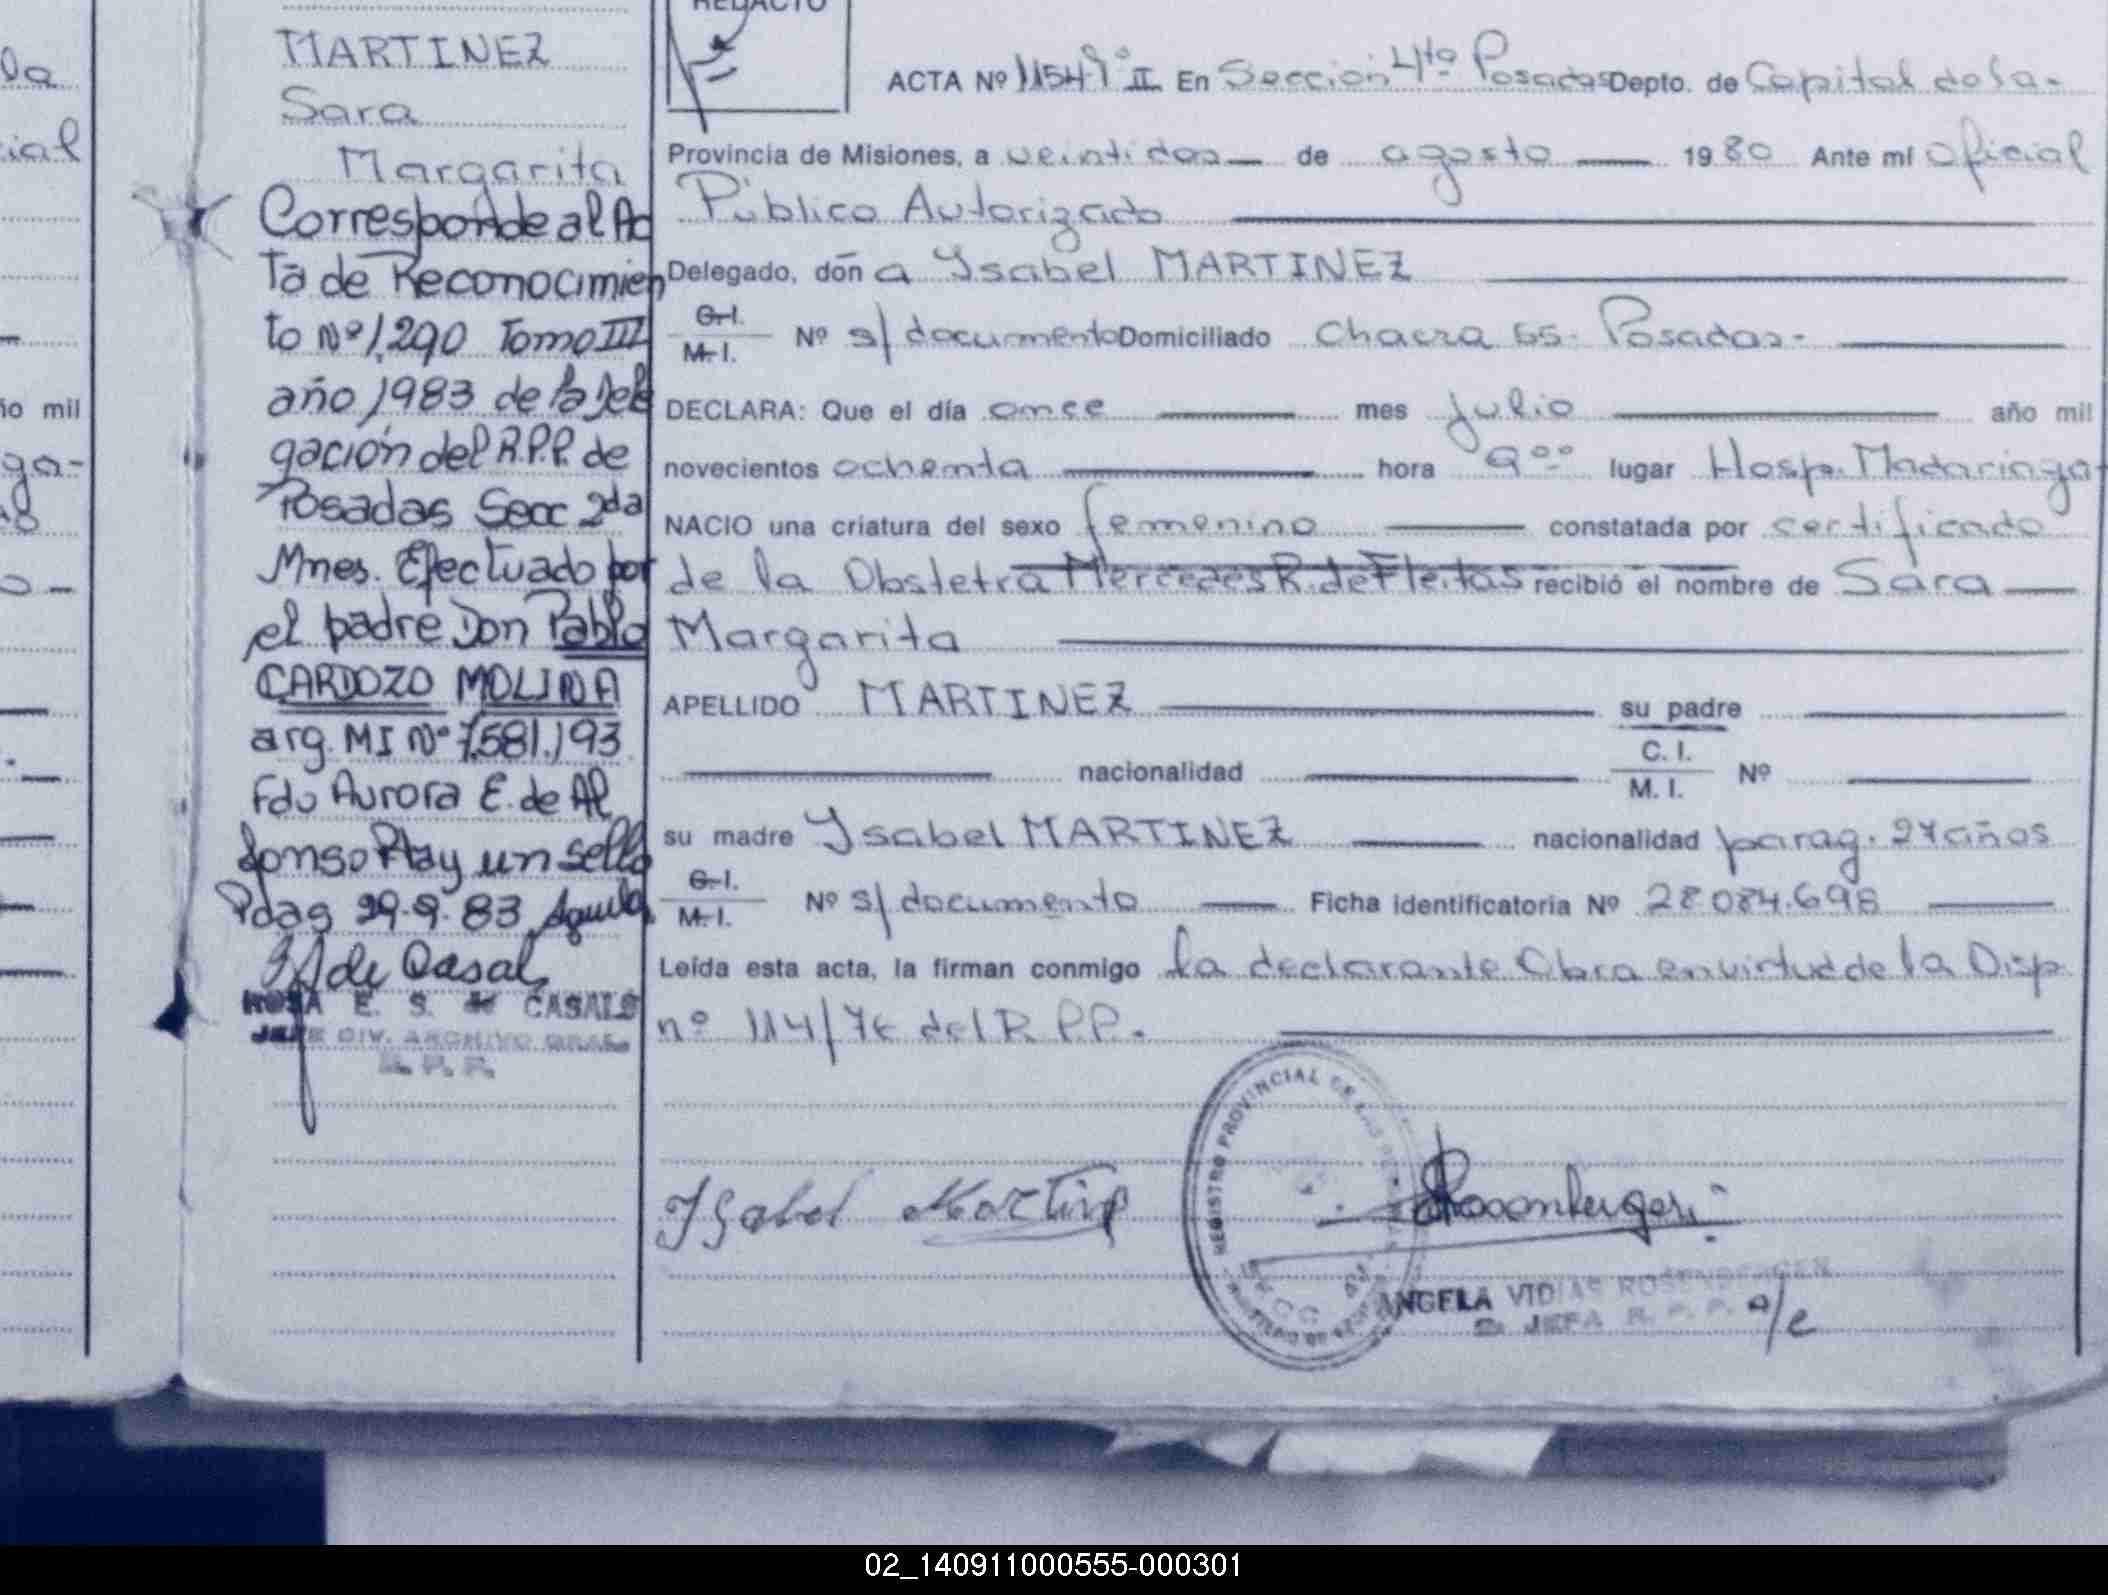 la
ial
ño mil
ga-
MARTINEZ
Sara
Margarita
Corresponde al Ac
ta de Reconocimien
to Nº 1,290 Tomo III
año 1983 de la Dele
gación del R.P.P. de
Posadas Secc 2da
Mnes. Efectuado por
el padre Don Pablo
CARDOZO MOLINA
arg. MI Nº 7.581.193
Fdo Aurora E. de Al
fonso Hay un sello
Pdas 29-9-83
de Casals
ROSA E. S. de CASALS
JEFE DIV. ARCHIVO GRAL.
R. P. P.
REDACTO
ACTA Nº 11549º II En Sección 4ta Posadas Depto. de Capital de la-
Provincia de Misiones, a veintidos de agosto 1980 Ante mí Oficial
Público Autorizado
Delegado, don a Ysabel MARTINEZ
C.I.
M.I. Nº s/documento Domiciliado Chacra 55- Posadas-
DECLARA: Que el día once mes julio año mil
novecientos ochenta hora 9ºº lugar Hosp. Madariaga
NACIO una criatura del sexo femenino constatada por certificado
de la Obstetra Mercedes R. de Fleitas recibió el nombre de Sara
Margarita
APELLIDO MARTINEZ su padre
nacionalidad C. I.
M. I. Nº
su madre Ysabel MARTINEZ nacionalidad parag. 27 años
C.I.
M.I. Nº s/documento Ficha identificatoria Nº 28.084.698
Leída esta acta, la firman conmigo la declarante Obra en virtud de la Disp
nº 114/76 del R.P.P.-
REGISTRO PROVINCIAL DE LAS
Ysabel Martine
ANGELA VIDIAS ROSENBERGER
JEFA R. P. P. a/c
02_140911000555-000301